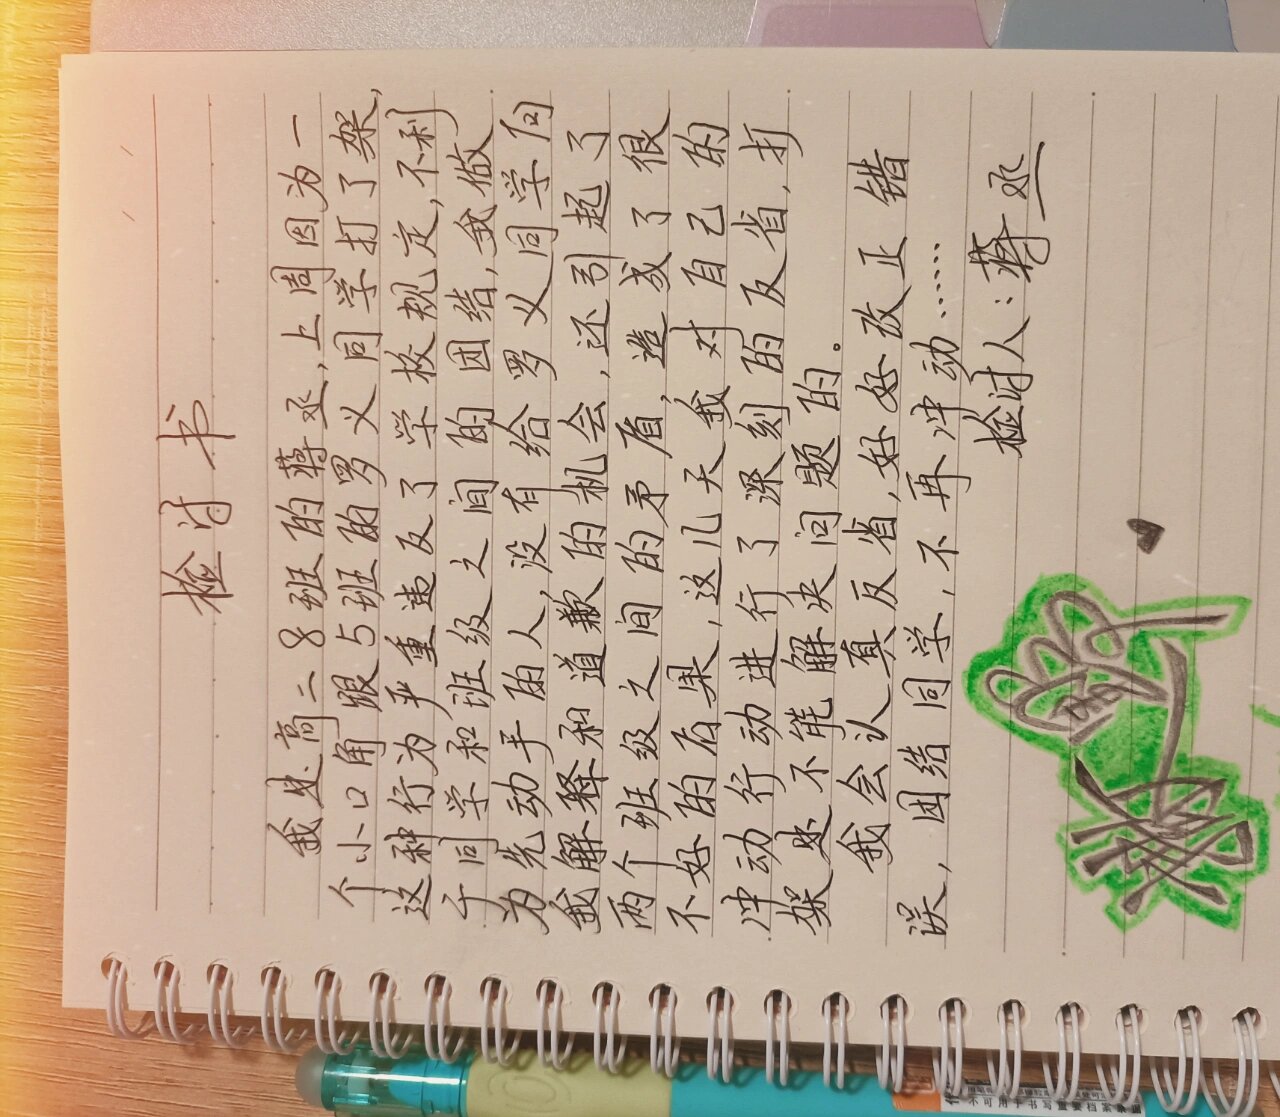 检讨书
我是高二8班的蒋丞，上周因为一
个小口角跟5班的罗义同学打了架，
这种行为严重违反了学校规定，不利
于同学和班级之间的团结，我做
为先动手的人，没有给罗义同学向
我解释和道歉的机会，还引起了
两个班级之间的矛盾，造成了很
不好的后果，这几天我对自己的
冲动行动进行了深刻的反省，打
架是不能解决问题的。
我会认真反省，好好改正错
误，团结同学，不再冲动……
检讨人：蒋丞